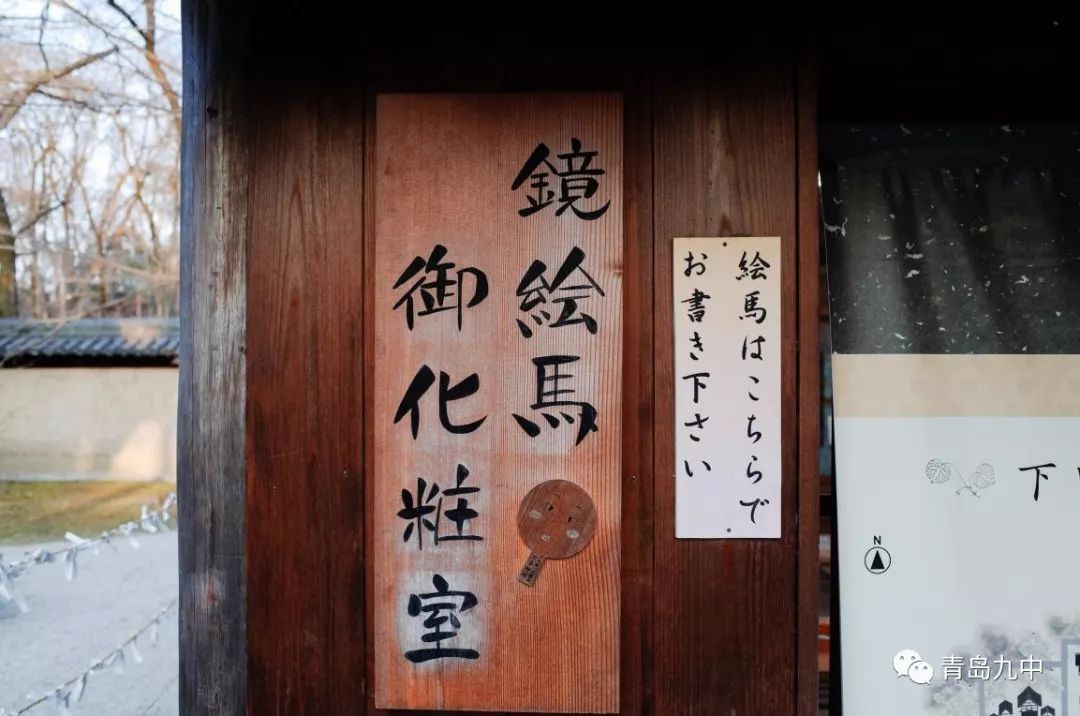 鏡絵馬
御化粧室
絵馬はこちらで
お書き下さい
下
N
青岛九中